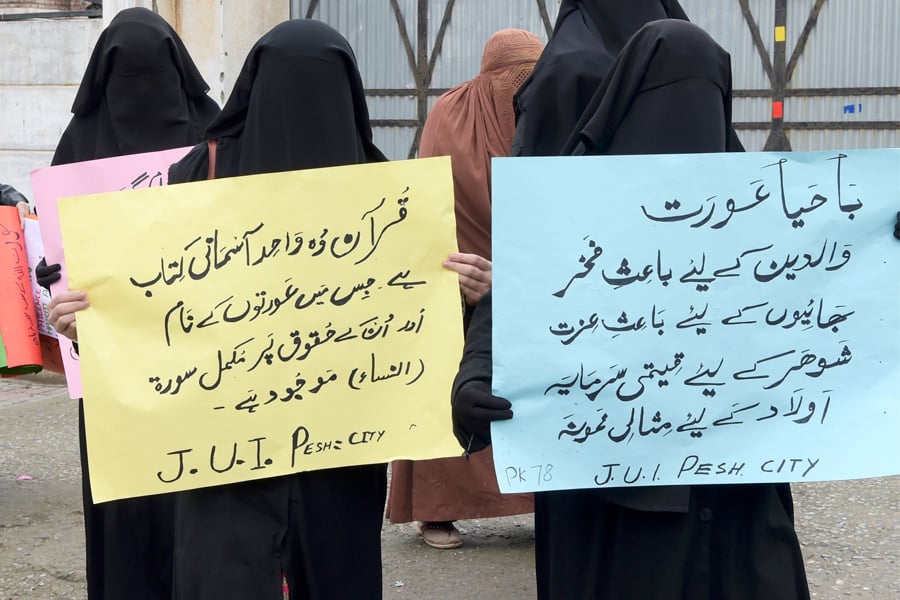 قُرآن وُہ وَاحِد آسمَانی کِتاب
ہے جِس مَیں عَورتوں کے نَام
اور اُن کے حُقوق پَر مکمل سورۃ
(النساء) مَوجُود ہَے -
J.U.I. PESH: CITY
بَا حَیا عَورَت
وَالدین کے لیئے بَاعثِ فخَر
بھَائیوں کے لیئے بَاعثِ عِزت
شَوھَر کے لیئے قِیمتی سَرمَایہ
اَولاد کے لیئے مِثالی نمُونَہ
PK 78
J.U.I PESH. CITY